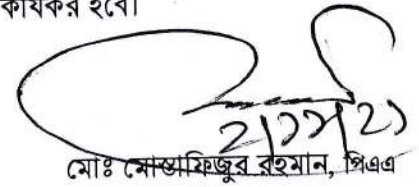 কার্যকর হবে।
মোঃ মোস্তাফিজুর রহমান, পিএএ